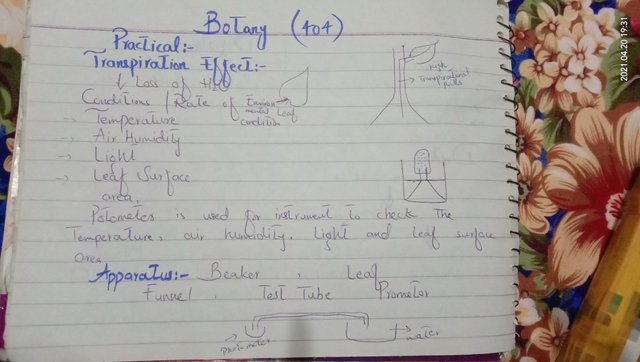 Botany (404)
Practical:-
Transpiration Effect:-
↓ Loss of H2O
Conditions / Rate of Environmental condition
Leaf
high
Transpirational
pulls
→ Temperature
→ Air Humidity
→ Light
→ Leaf Surface
area.
Potometer is used for instrument to check The
Temperature, air humidity, Light and Leaf surface
area
Apparatus:- Beaker , Leaf
Funnel , Test Tube Promotor
water
2021.04.20 19:31